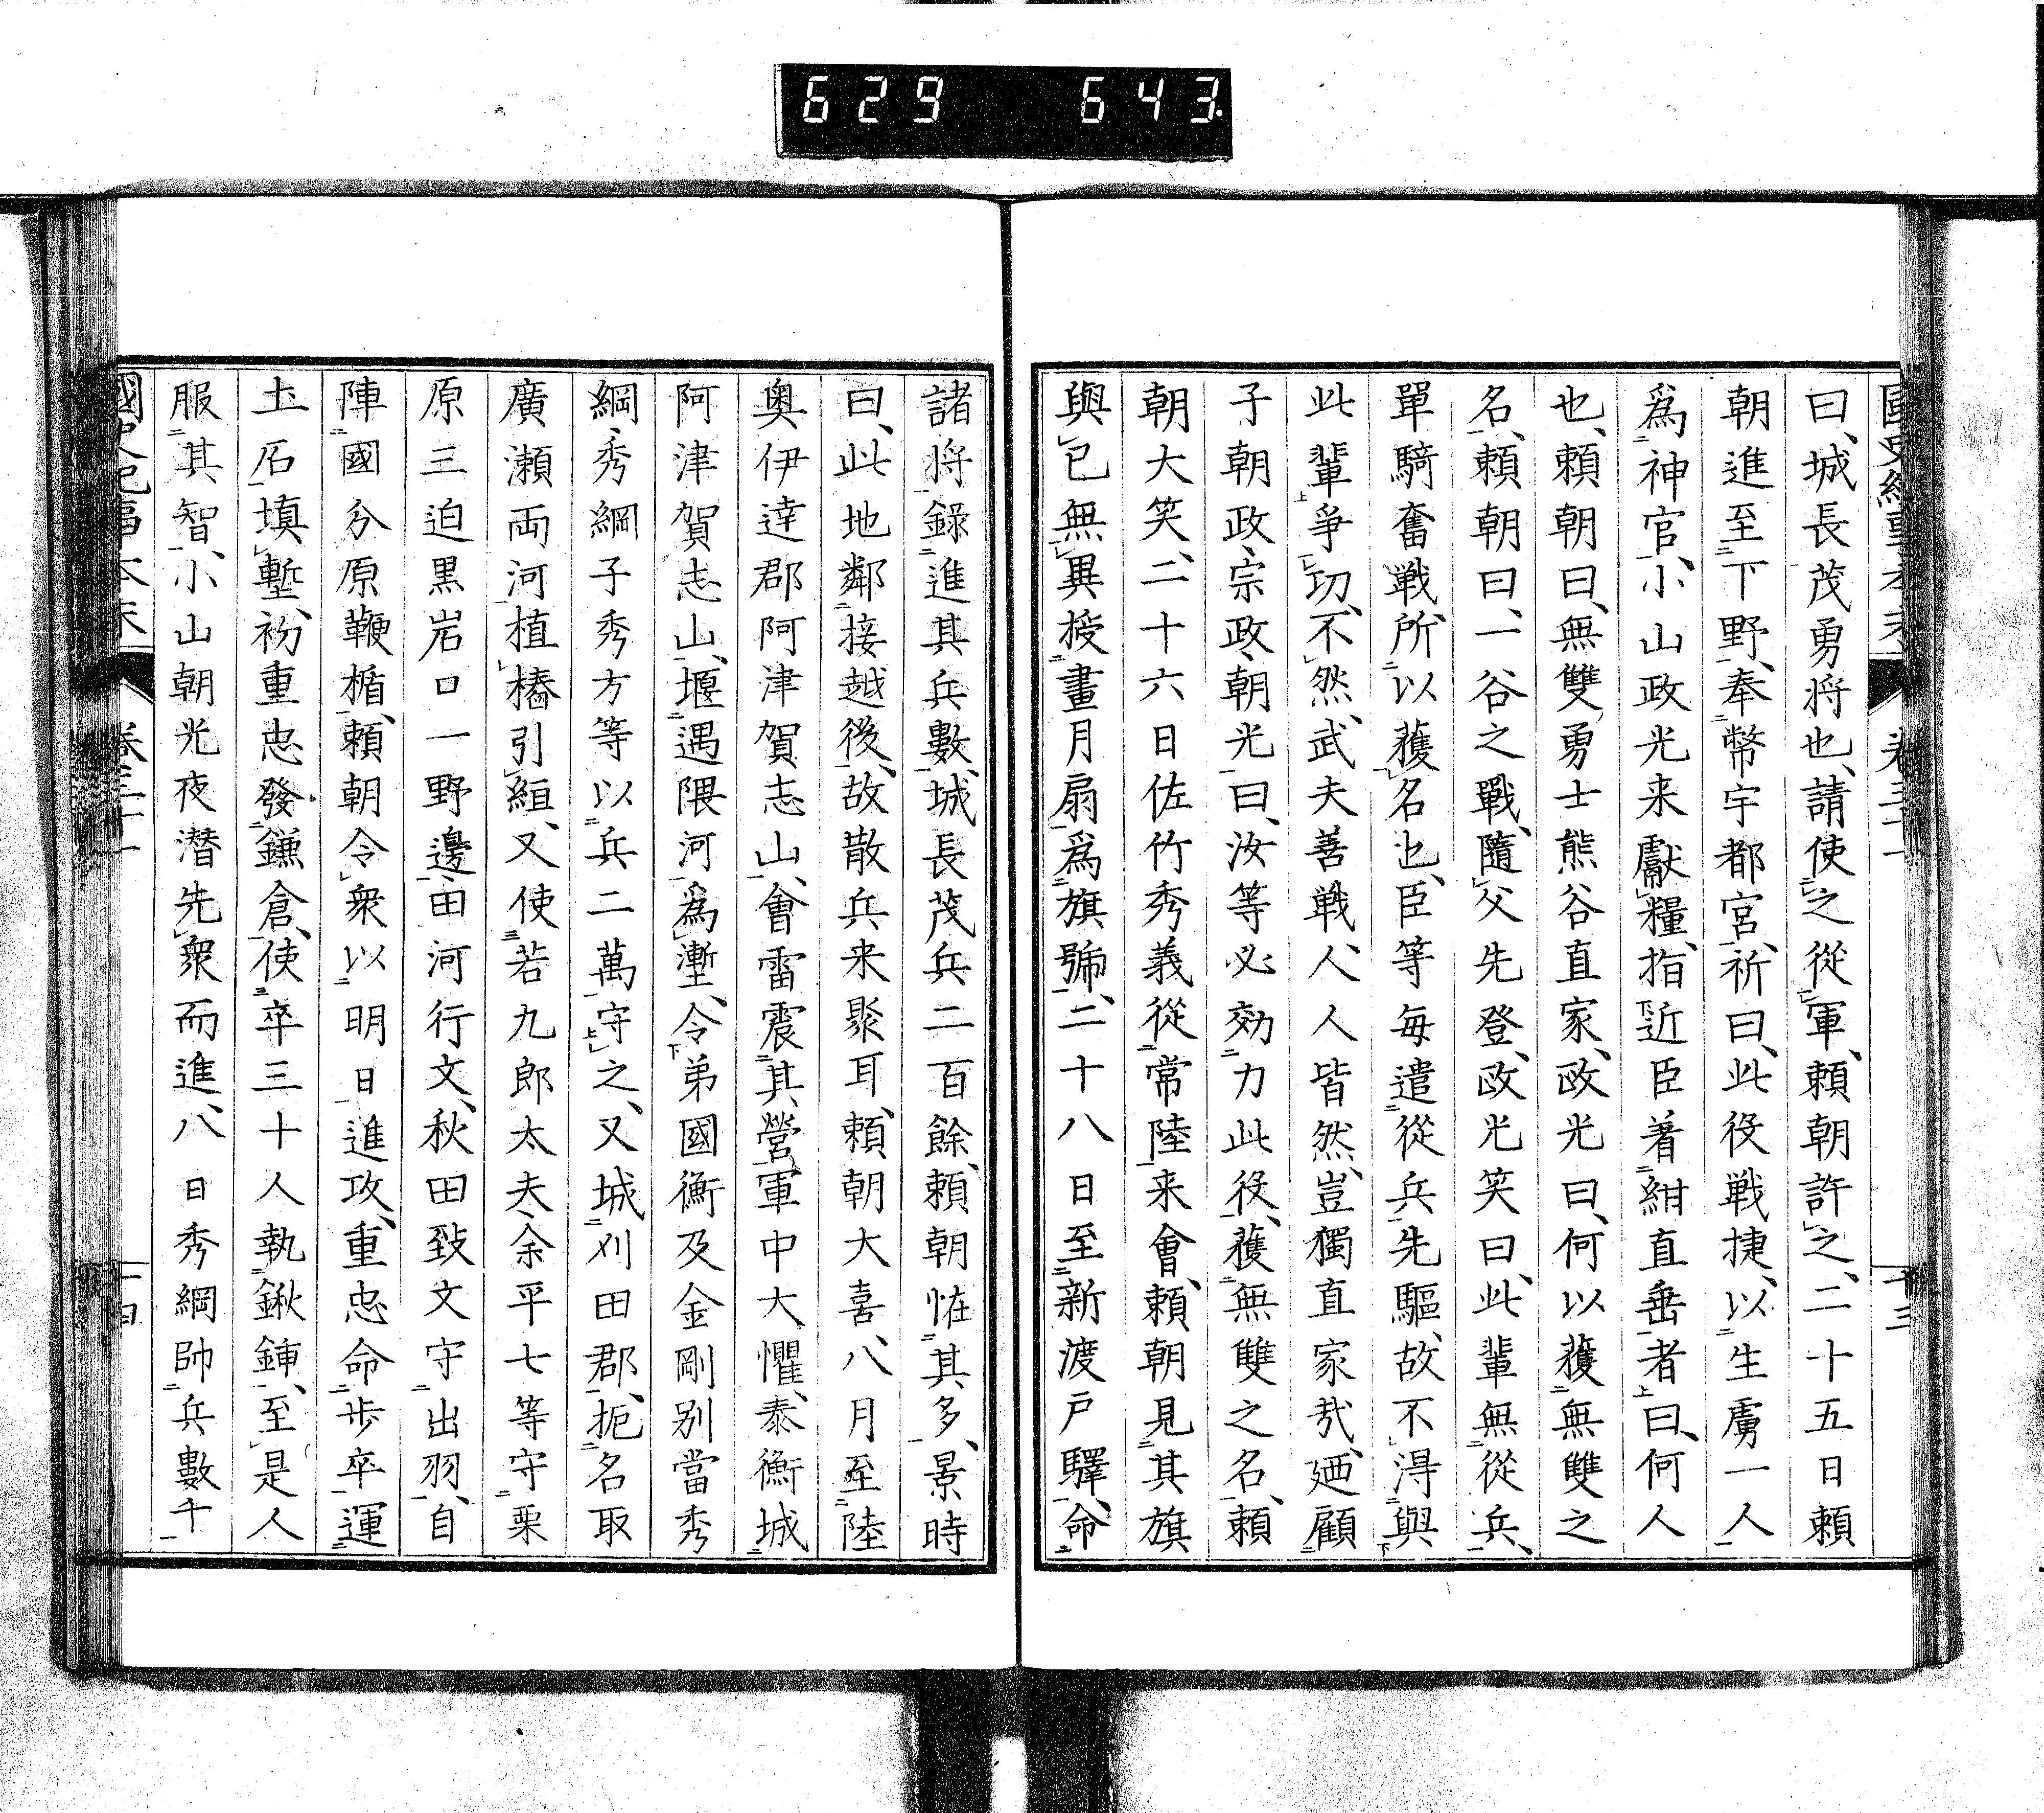 629 643
曰、城長茂勇将也、請使之從軍、頼朝許之、二十五日頼
朝進至下野、奉幣宇都宮、祈曰、此役戦捷、以生虜一人
爲神官、小山政光来獻糧、指近臣着紺直垂者曰、何人
也、頼朝曰、無雙勇士熊谷直家、政光曰、何以獲無雙之
名、頼朝曰、一谷之戰、隨父先登、政光笑曰、此輩無從兵、
單騎奮戦、所以獲名也、臣等毎遣從兵先驅、故不得與
此輩爭功、不然、武夫善戦、人人皆然、豈獨直家哉、廼顧
子朝政、宗政、朝光曰、汝等必効力此役、獲無雙之名、頼
朝大笑、二十六日佐竹秀義從常陸来會、頼朝見其旗
與已無異授畫月扇爲旗號、二十八日至新渡戸驛、命
諸将錄進其兵數、城長茂兵二百餘、頼朝恠其多、景時
曰、此地鄰接越後、故散兵来聚耳、頼朝大喜、八月至陸
奥伊達郡阿津賀志山、會雷震其營、軍中大懼、泰衡城
阿津賀志山、堰遇隈河爲塹、令弟國衡及金剛別當秀
綱、秀綱子秀方等以兵二萬守之、又城刈田郡、扼名取
廣瀬両河、植樁引絙、又使若九郎太夫、余平七等守栗
原三迫黒岩口一野邊、田河行文、秋田致文守出羽、自
陣國分原鞭楯、頼朝令衆以明日進攻、重忠命歩卒運
土石填塹、初重忠發鎌倉、使卒三十人執鍬鍤、至是人
服其智、小山朝光夜潜先衆而進、八日秀綱帥兵數千
國史紀事本末 卷三十一 十四